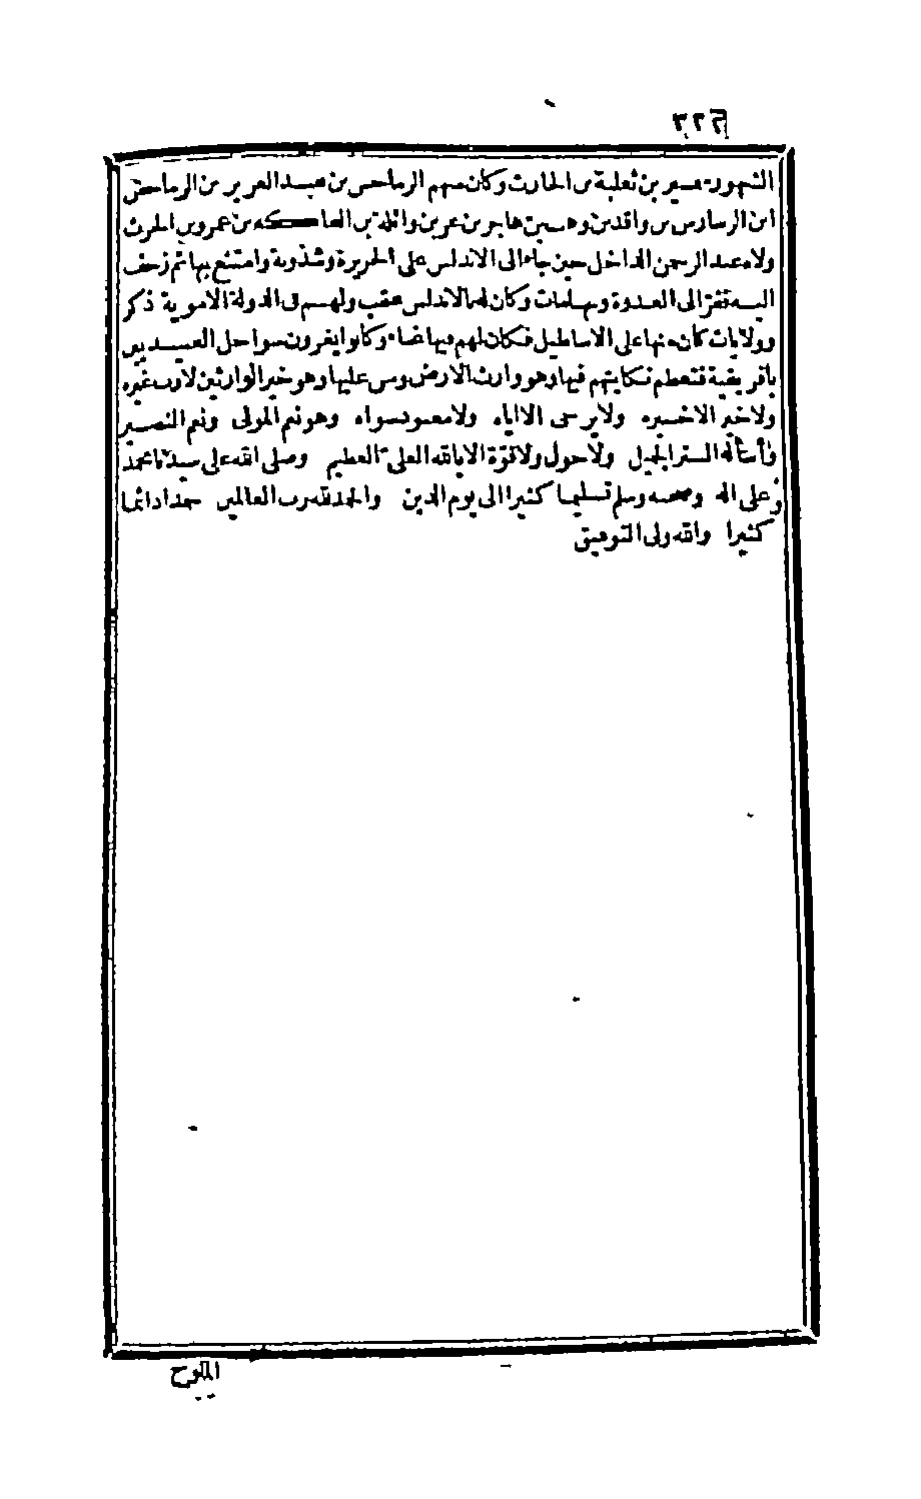 ٣٢٢
الشهور عمير بن ثعلبة بن الحارث وكان منهم الرماحس بن عبد العزيز بن الرماحس
ابن الرسارس بن واقد بن وهب بن هاجر بن عر بن وائلة بن الفاكه بن عمرو بن الحرث
ولاه عبد الرحمن الداخل حين جاء الى الاندلس على الجزيرة وشذونة وامتنع بها ثم زحف
اليه ففر الى العدوة وبها مات وكان له بالاندلس عقب ولهم فى الدولة الاموية ذكر
وولايات كان منها على الاساطيل فكان لهم فيها غناء وكانوا يغزون سواحل العبيديين
بافريقية فتعظم نكايتهم فيها وهو وارث الارض ومن عليها وهو خير الوارثين لا رب غيره
ولا خير الا خيره ولا يرجى الا اياه ولا معبود سواه وهو نعم المولى ونعم النصير
وأسأله الستر الجميل ولا حول ولا قوة الا بالله العلى العظيم وصلى الله على سيدنا محمد
وعلى آله وصحبه وسلم تسليما كثيرا الى يوم الدين والحمد لله رب العالمين حمدا دائما
كثيرا والله ولى التوفيق